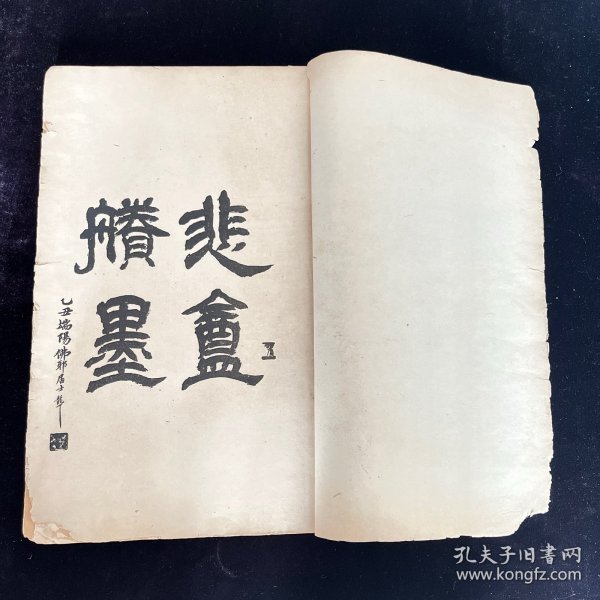 悲盦
賸墨
五
乙丑端陽佛耶居士隼
孔夫子旧書网
www.kongfz.com